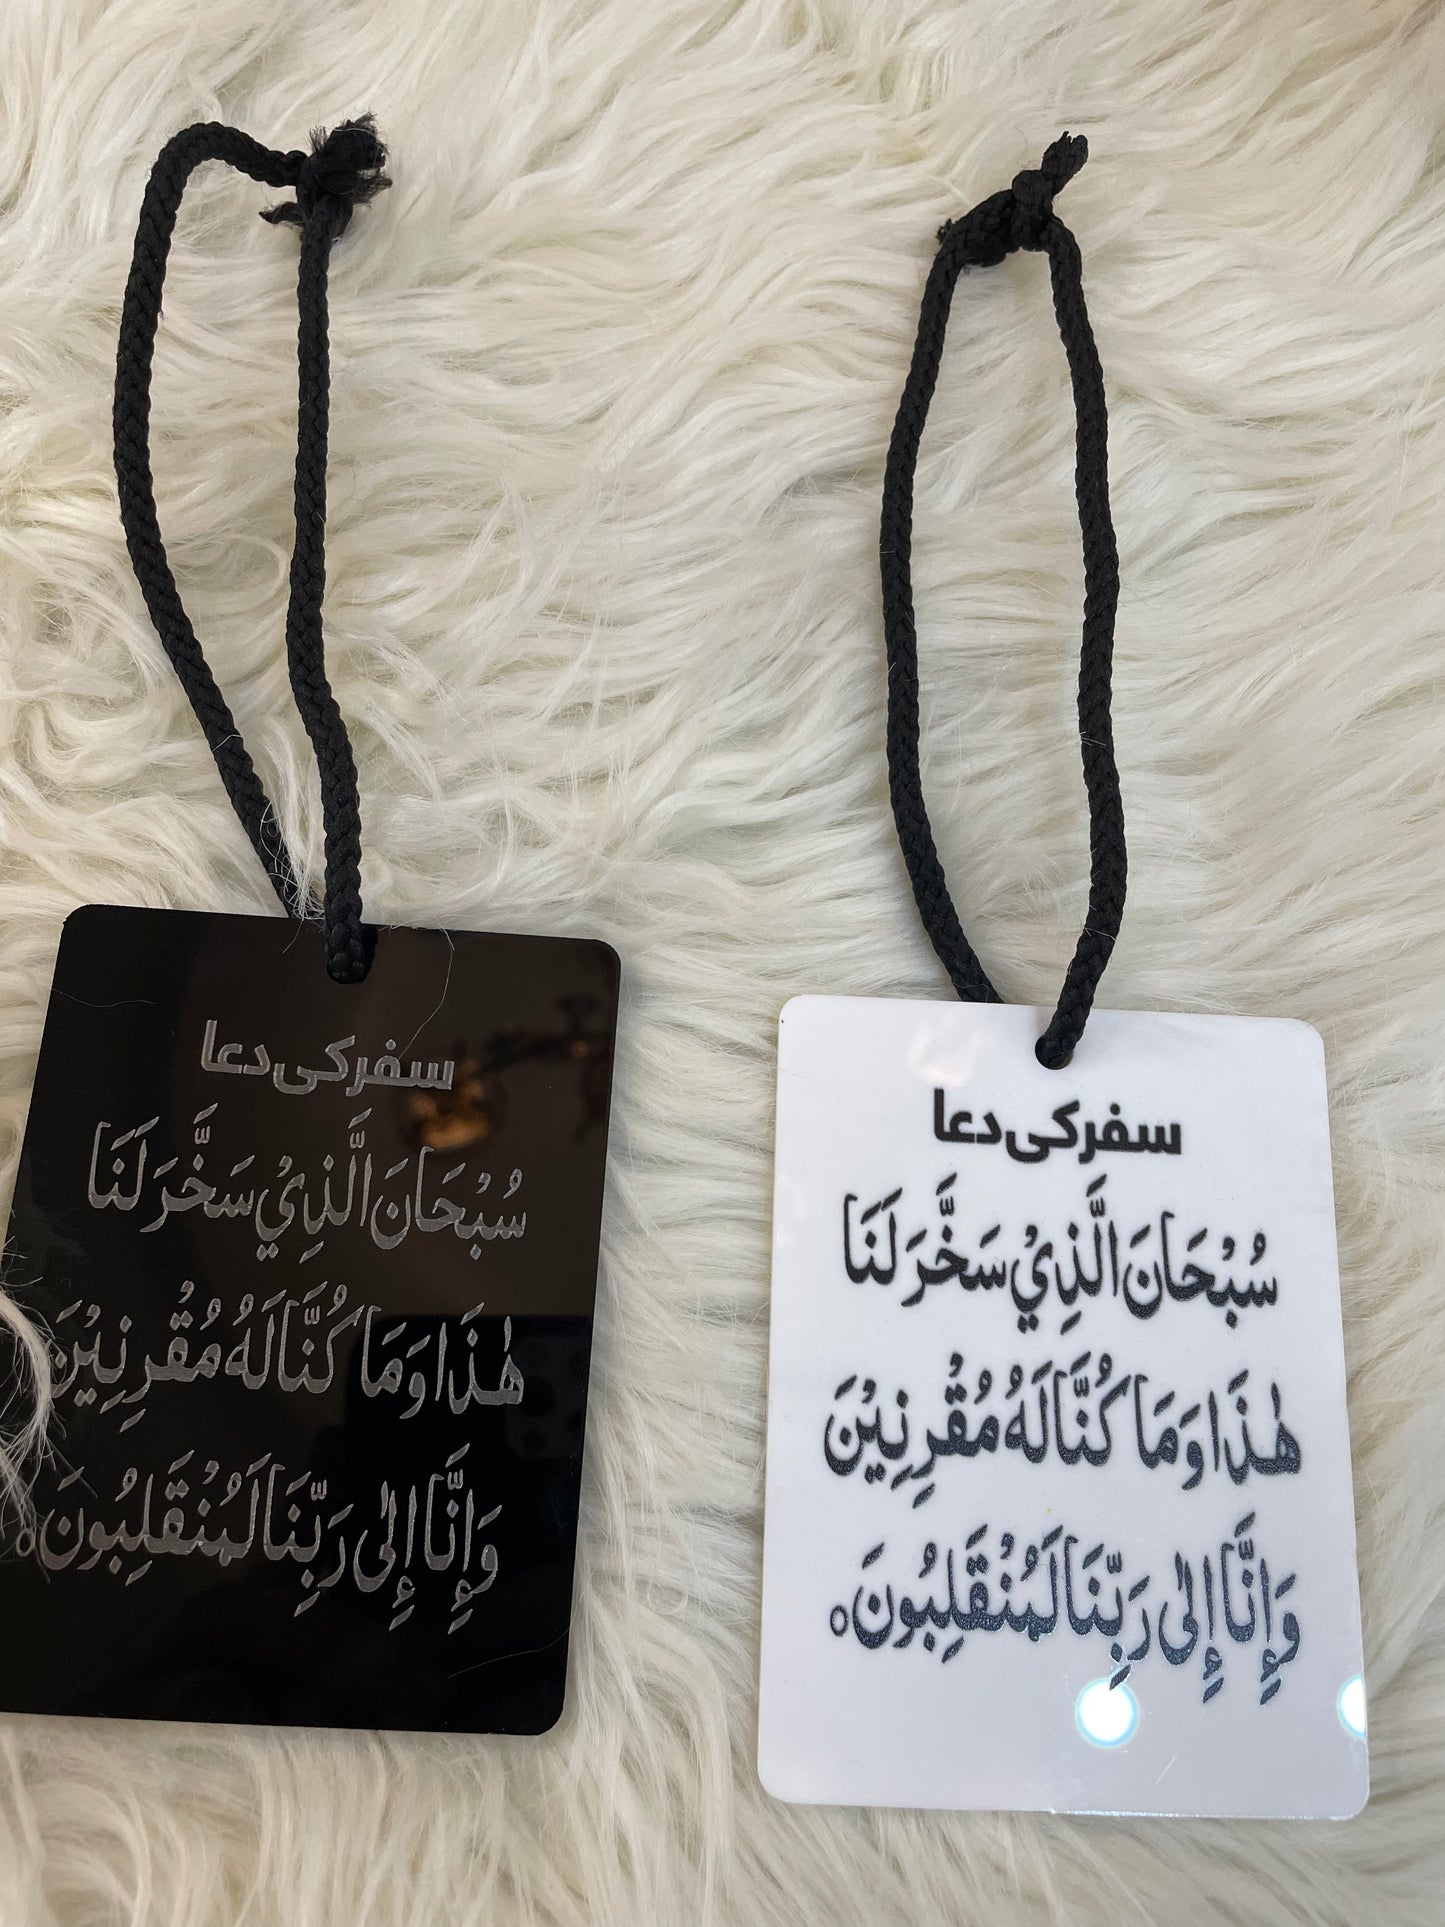 سفر کی دعا
سُبْحَانَ الَّذِيْ سَخَّرَ لَنَا
هٰذَا وَمَا كُنَّا لَهُ مُقْرِنِيْنَ
وَإِنَّا إِلىٰ رَبِّنَا لَمُنْقَلِبُونَ ه
سفر کی دعا
سُبْحَانَ الَّذِيْ سَخَّرَ لَنَا
هٰذَا وَمَا كُنَّا لَهُ مُقْرِنِيْنَ
وَإِنَّا إِلىٰ رَبِّنَا لَمُنْقَلِبُونَ ه